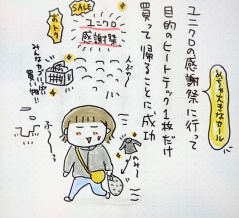 めちゃ大きなセール
ユニクロの感謝祭に行って
目的のヒートテック1枚だけ
買って帰ることに成功
SALE
ユニクロ
感謝祭
おトク
みんなカゴで
買い物!!
人ごみ
のみ
ふーっ